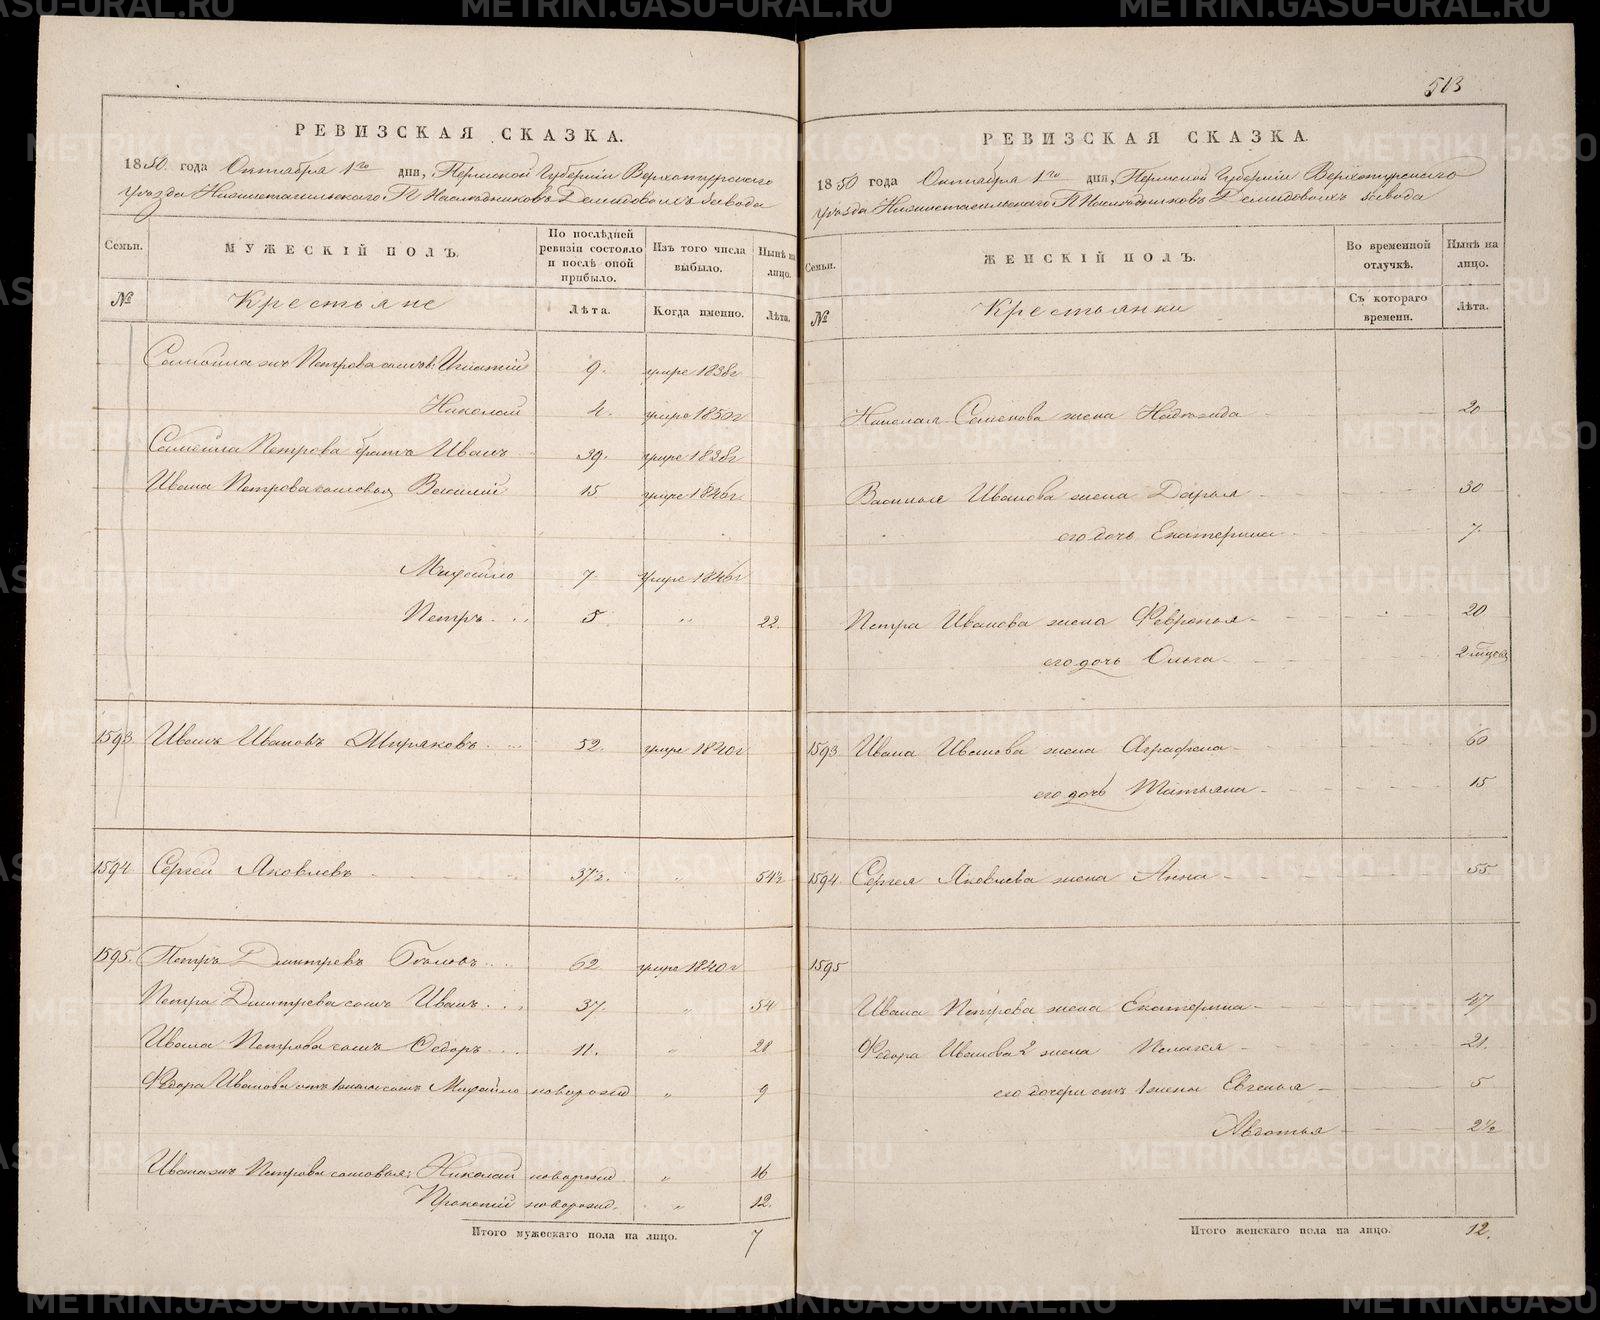 513
РЕВИЗСКАЯ СКАЗКА.
1850 года Октября 1го дня, Пермской Губернии Верхотурского
уезда Нижнетагильского Г Наследниковъ Демидовыхъ завода
Семьи. МУЖЕСКІЙ ПОЛЪ. По послѣдней ревизіи состояло и послѣ оной прибыло. Изъ того числа выбыло. Нынѣ на лицо.
№ Крестьяне Лѣта. Когда именно. Лѣта.
Самойла жъ Петрова сынъ Игнатій 9. умре 1838г
Николай 4. умре 1850г
Самойла Петрова братъ Иванъ 39. умре 1838г
Ивана Петрова сыновья Василій 15 умре 1846г
Михайло 7. умре 1846г
Петръ 5. " 22.
1593 Иванъ Ивановъ Ширяковъ 52. умре 1840г
1594 Сергей Яковлевъ 37½. " 54½
1595. Петръ Дмитревъ 62. умре 1840г
Петра Дмитрева сынъ Иванъ 37. " 54
Ивана Петрова сынъ Федоръ 11. " 28
Федора Иванова отъ 1 жены сынъ Михайло новорожд " 9
Ивана жъ Петрова сыновья: Николай новорожд. " 16
Прокопій новорожд. " 12.
Итого мужескаго пола на лицо. 7
РЕВИЗСКАЯ СКАЗКА.
1850 года Октября 1го дня, Пермской Губернии Верхотурского
уезда Нижнетагильского Г Наследниковъ Демидовыхъ завода
Семьи. ЖЕНСКІЙ ПОЛЪ. Во временной отлучкѣ. Нынѣ на лицо.
№ Крестьянки Съ котораго времени. Лѣта.
Николая Семенова жена Надежда 20
Василья Иванова жена Дарья 30
его дочь Екатерина 7.
Петра Иванова жена Февронья 20
его дочь Ольга 2 мѣсяц
1593 Ивана Иванова жена Аграфена 60
его дочь Татьяна 15
1594. Сергея Яковлева жена Анна 55
1595
Ивана Петрова жена Екатерина 47
Федора Иванова 2 жена Пелагея 21.
его дочери отъ 1 жены Евгенья 5
Авдотья 2½
Итого женскаго пола на лицо. 12.
METRIKI.GASO-URAL.RU